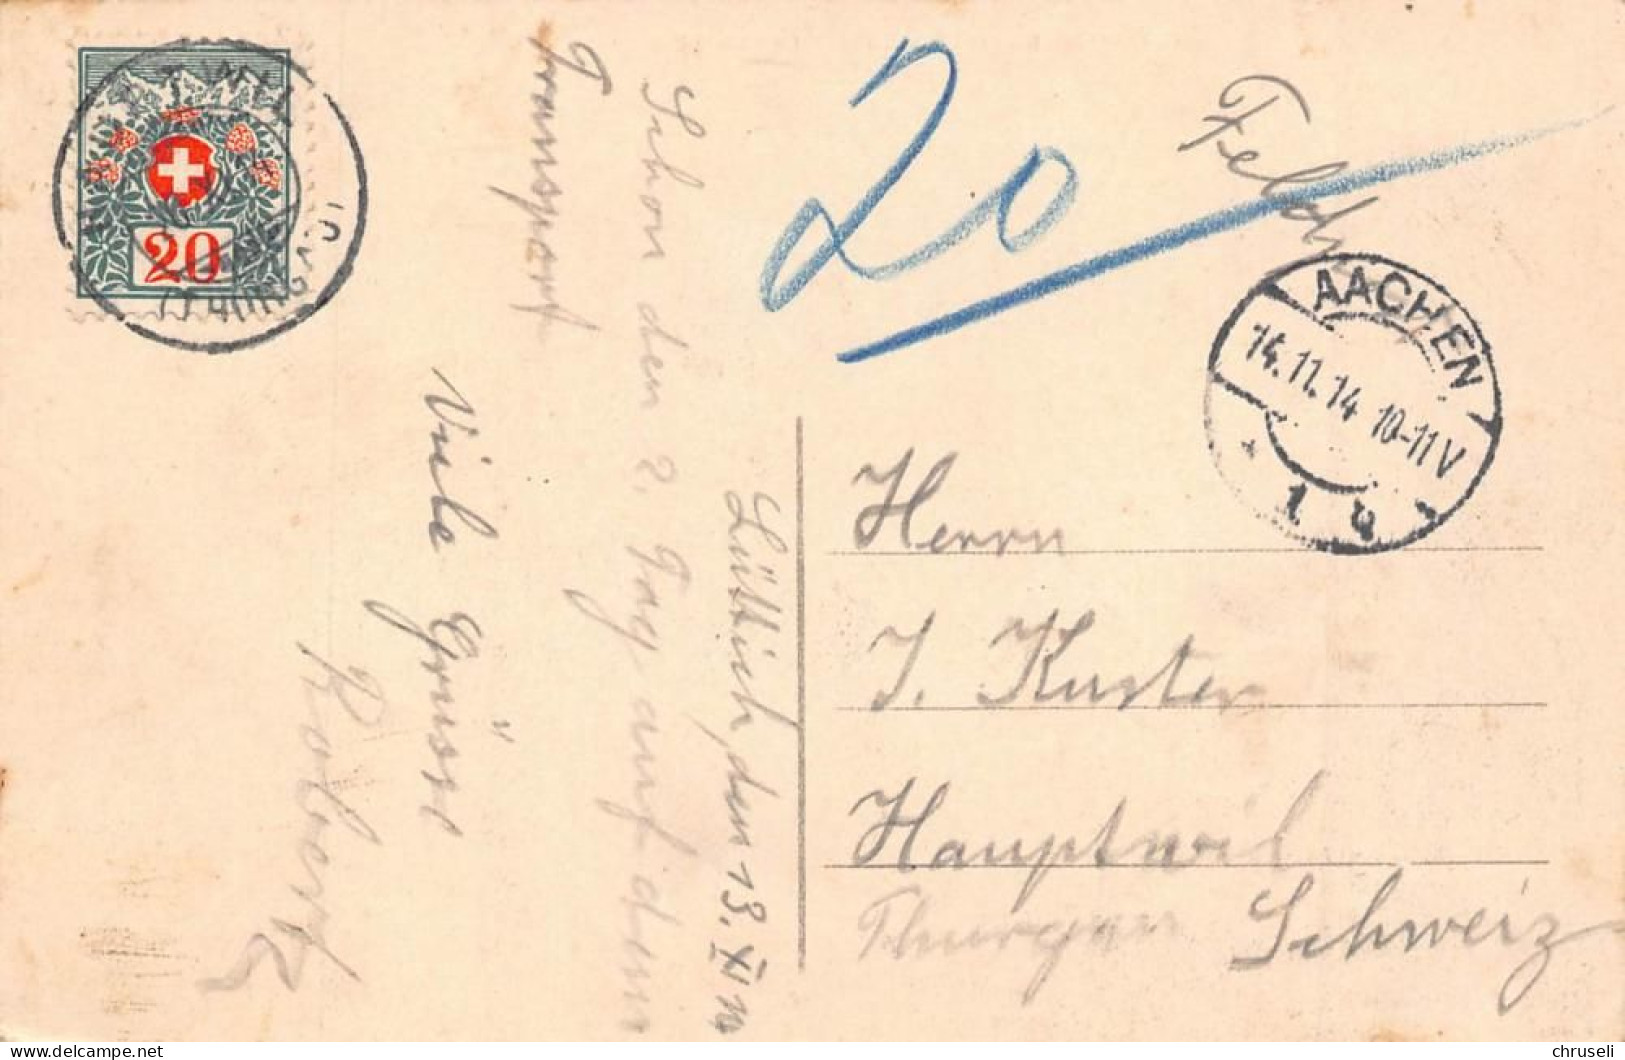 20
20
Feldp
AACHEN
14.11.14 10-11V
1
Lüttich, den 13. XI 14
Schon den 2. Tag auf dem
Transport
Viele Grüsse
Robert
Herrn
J. Kuster
Hauptwil
Thurgau Schweiz
delcampe.net
chruseli